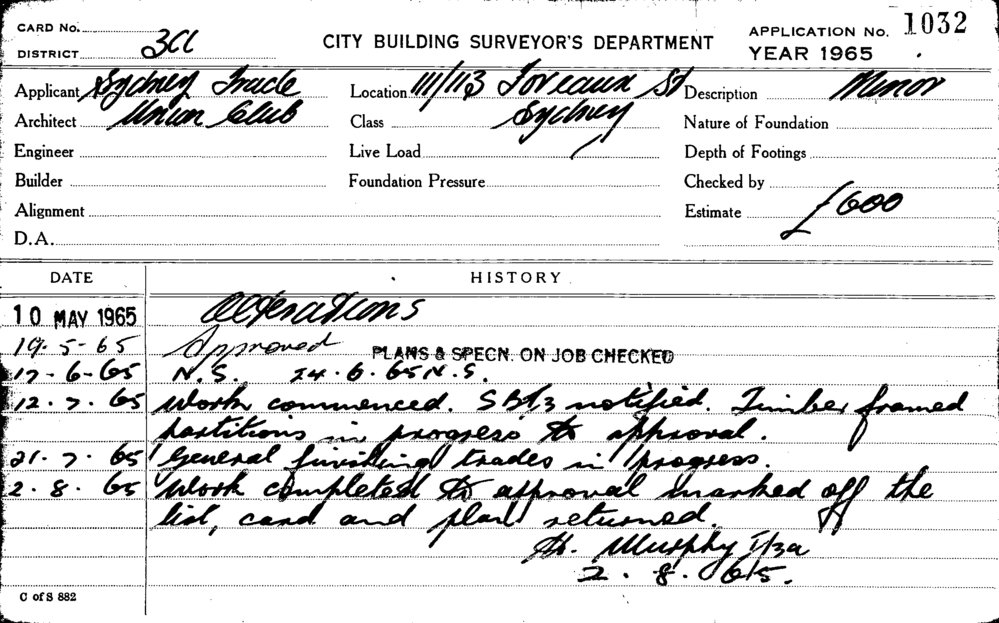 CARD No.
DISTRICT 3CC
CITY BUILDING SURVEYOR'S DEPARTMENT
APPLICATION No. 1032
YEAR 1965
Applicant Sydney Trade
Location 111/113 Foveaux St
Description Minor
Architect Union Club
Class Sydney
Nature of Foundation
Engineer
Live Load
Depth of Footings
Builder
Foundation Pressure
Checked by
Alignment
Estimate £600
D.A.
DATE HISTORY
10 MAY 1965 Alterations
19.5-65 Approved PLANS & SPECN. ON JOB CHECKED
17-6-65 N.S. 24.6.65 N.S.
12.7.65 Work commenced. notified. Timber framed
partitions in progress to approval.
21.7.65 General finishing trades in progress.
2.8.65 Work completed to approval marked off the
list, card and plan returned.
Murphy
2.8.65.
C of S 882